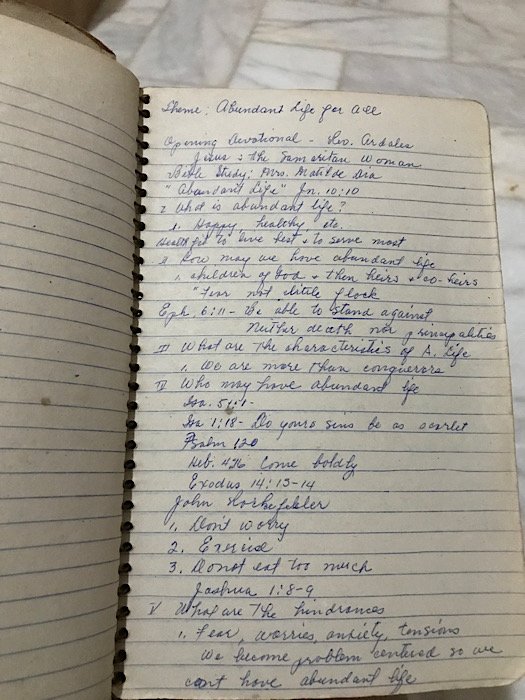 Theme: Abundant Life for all
Opening Devotional - Rev. Ardales
Jesus & the Samaritan Woman
Bible Study: Mrs. Matilde
"Abundant Life" Jn. 10:10
I What is abundant life?
1. Happy, healthy etc.
get to live best & to serve most
II How may we have abundant life
1. children of God & then heirs & co-heirs
"Fear not little flock
Eph. 6:11 - Be able to stand against
Neither death nor principalities
III What are the characteristics of A. Life
1. We are more than conquerors
IV Who may have abundant life
Isa. 51:1-
Isa 1:18 - Do yours sins be as scarlet
Psalm 120
Heb. 4:16 Come boldly
Exodus 14:13-14
John
1. Don't worry
2. Exercise
3. Do not eat too much
Joshua 1:8-9
V What are the hindrances
1. Fear, worries, anxiety, tensions
We become problem centered so we
can't have abundant life